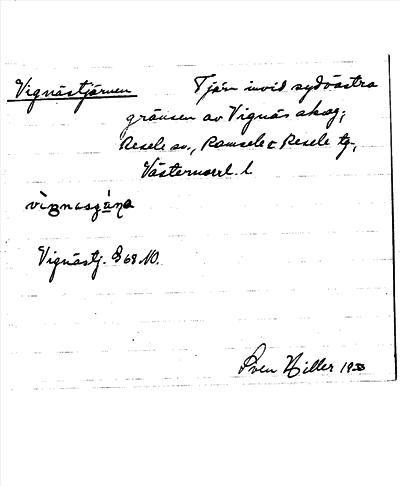 Vignästjärnen Tjärn invid sydvästra
gränsen av Vignäs skog;
Resele sn., Ramsele & Resele tg.,
Västernorrl. l.
Vignästj. G 68 NO.
Sven Hiller 1933